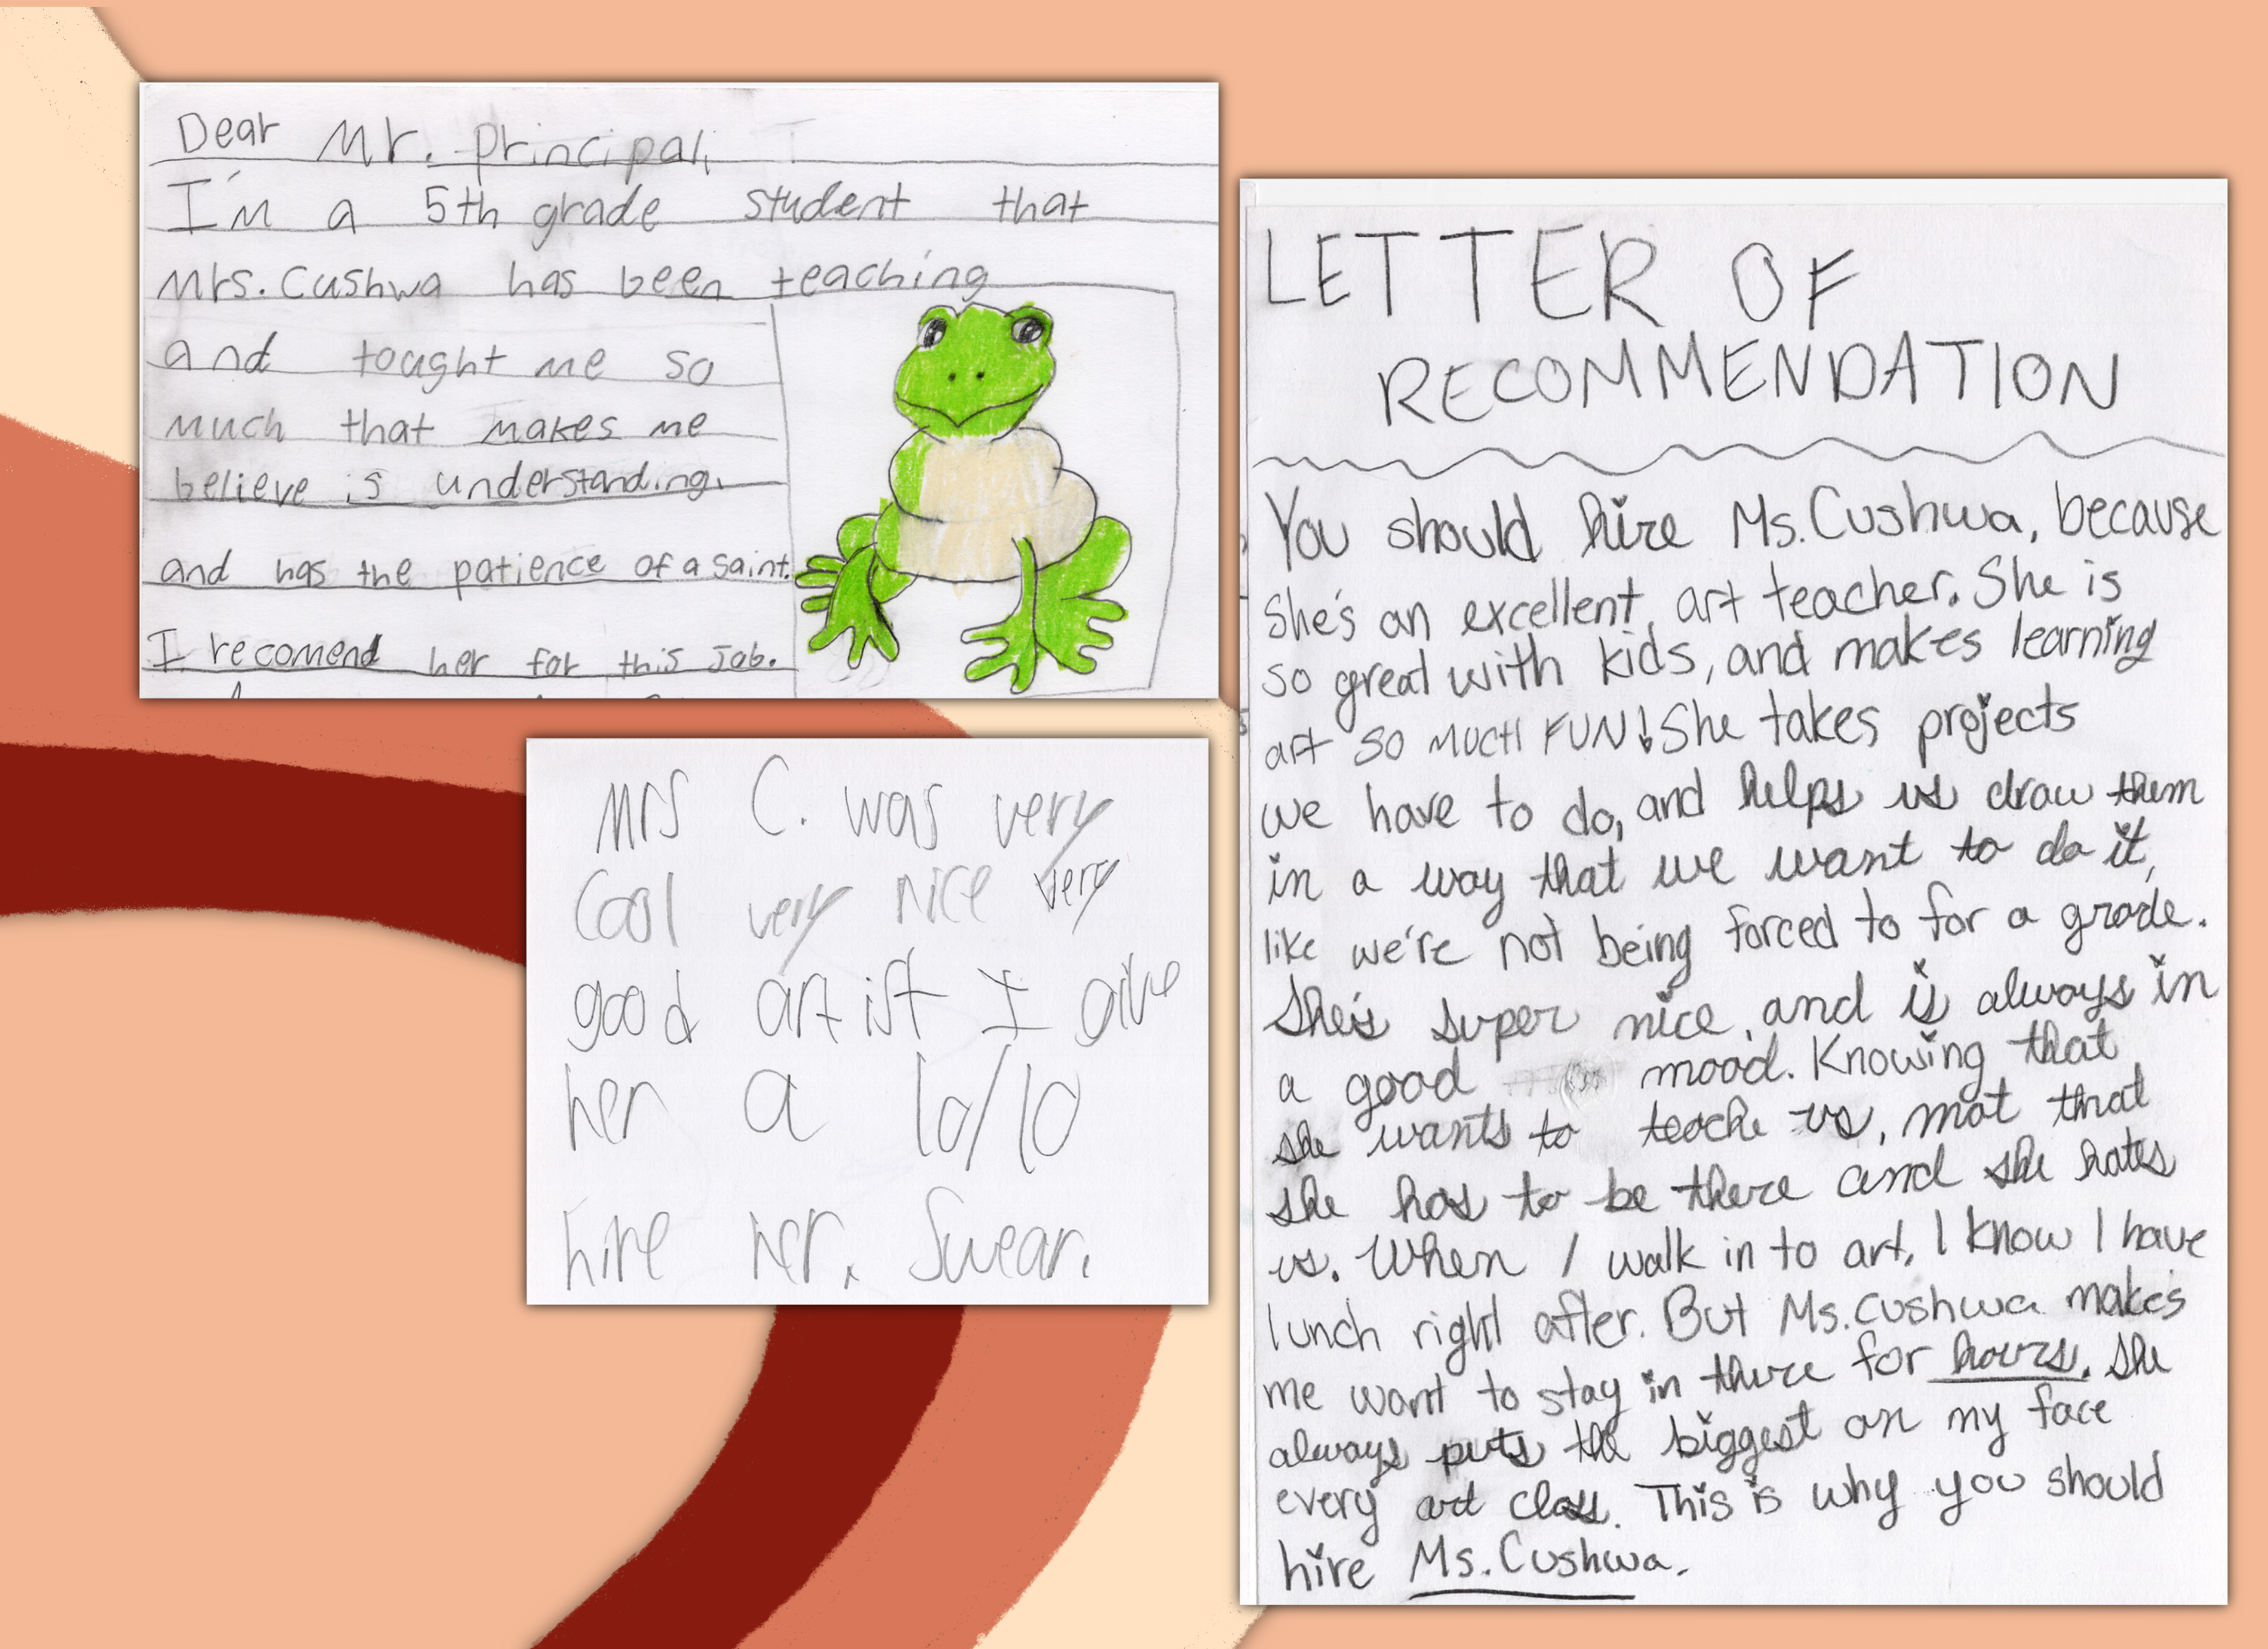 Dear Mr. principal,
I'm a 5th grade student that
Mrs. Cushwa has been teaching
and tought me so
much that makes me
believe is understanding.
and has the patience of a saint.
I recomend her for this job.
Mrs C. was very
Cool very nice very
good artist I give
her a 10/10
hire her. Swear.
LETTER OF
RECOMMENDATION
You should hire Ms. Cushwa, because
she's an excellent, art teacher. She is
so great with kids, and makes learning
art SO MUCH FUN! She takes projects
we have to do, and helps us draw them
in a way that we want to do it,
like we're not being forced to for a grade.
She's super nice, and is always in
a good mood. Knowing that
she wants to teache us, not that
she has to be there and she hates
us. When I walk in to art, I know I have
lunch right after. But Ms. Cushwa makes
me want to stay in there for hours. She
always puts the biggest on my face
every art class. This is why you should
hire Ms. Cushwa.